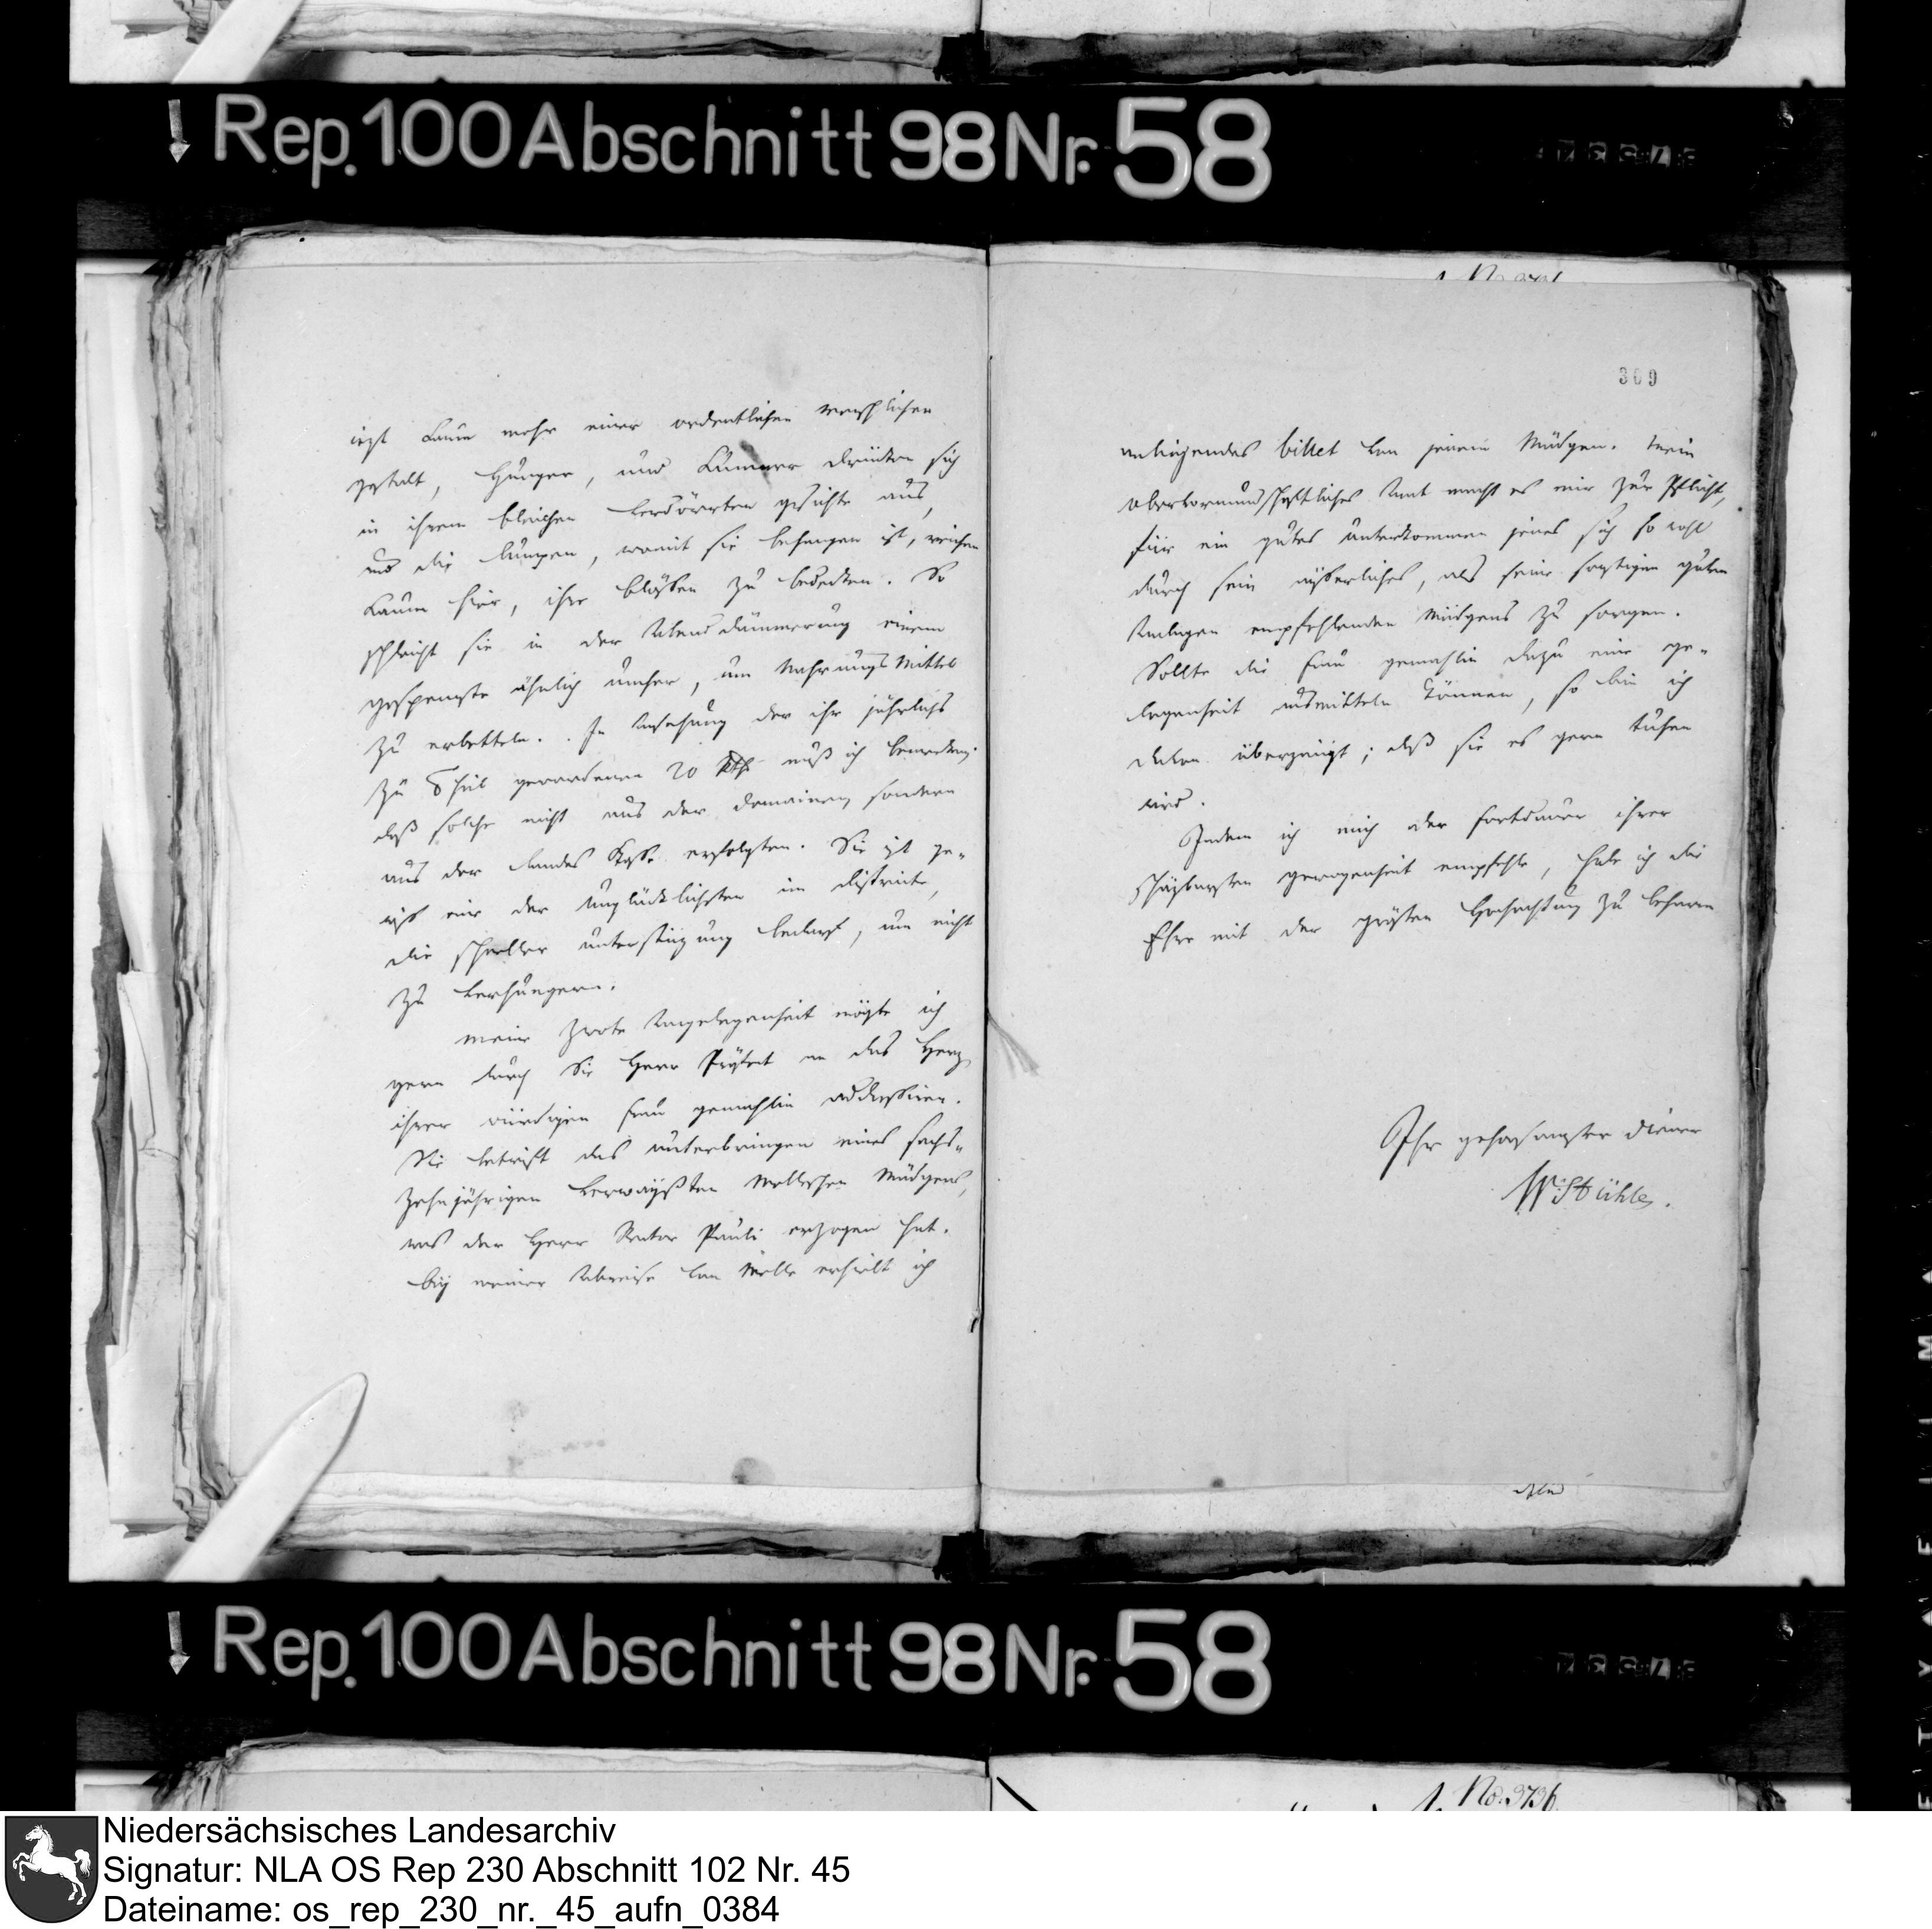 Rep. 100 Abschnitt 98 Nr. 58
izt kaum mehr einer ordentlichen menschlichen
gestalt, Hunger, und Kummer drückten sich
in ihrem bleichen verdörrten gesichte aus,
und die lumpen, womit sie behangen ist, reichen
kaum hin, ihre blößen zu bedecken. So
schleicht sie in der Abend dämmerung einem
gespenste ähnlich umher, um Nahrungs Mittel
zu erbetteln. In Ansehung der ihr jährlichs
zu Theil gewordenen 20 Rthr muß ich bemerken,
daß solche nicht aus der domainen sondern
aus der Landes Kasse erfolgten. Sie ist ge-
wiß eine der Unglücklichsten im districte,
die schneller unterstüzung bedarf, um nicht
zu verhungern.
Meine zwote Angelegenheit mögte ich
gern durch Sie Herr Präfect an das Herz
ihrer würdigen frau gemahlin addressiren.
Sie betrift das unterbringen eines sechs-
zehnjährigen verwayßten Mellschen Mädgens,
was der Herr Pauli erzogen hat.
bey meiner Abreise von Melle erhielt ich
309
anliegendes billet von jenem Mädgen. Mein
obervormundschaftliches Amt macht es mir zur Pflicht,
für ein gutes unterkommen jenes sich so wohl
durch sein äußerliches, als seine sonstigen guten
Anlagen empfehlenden Mädgens zu sorgen.
Sollte die frau gemahlin dazu eine ge-
legenheit ausmitteln können, so bin ich
davon überzeugt; daß sie es gern tuhen
wird.
Indem ich mich der fortdauer ihrer
schäzbarsten gewogenheit empfehle, habe ich die
Ehre mit der grösten Hochachtung zu beharren
Ihr gehorsamster diener
WStühle.
Rep. 100 Abschnitt 98 Nr. 58
No. 3736
Niedersächsisches Landesarchiv
Signatur: NLA OS Rep 230 Abschnitt 102 Nr. 45
Dateiname: os_rep_230_nr._45_aufn_0384